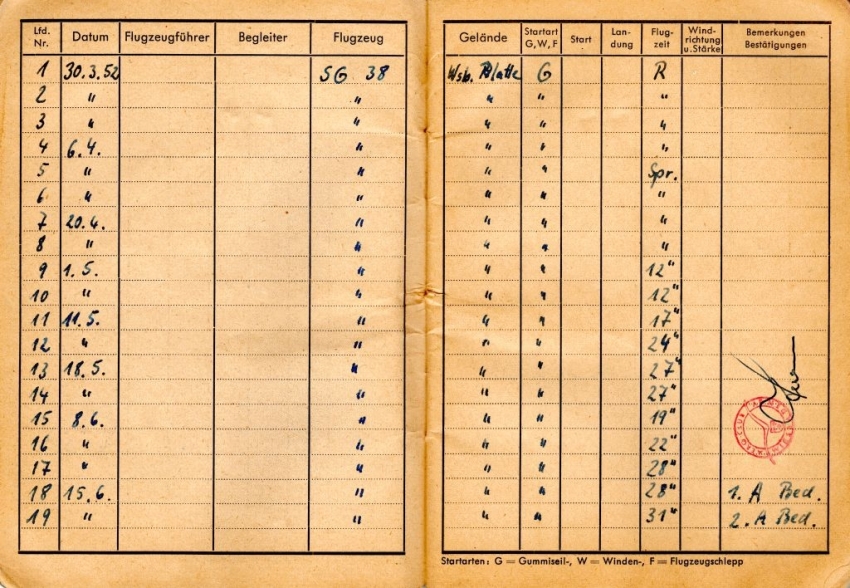 Lfd. Nr. Datum Flugzeugführer Begleiter Flugzeug Gelände Startart G, W, F Start Lan- dung Flug- zeit Wind- richtung u. Stärke Bemerkungen Bestätigungen
1 30.3.52 SG 38 Wsb. Platte G R
2 " " " " "
3 " " " " "
4 6.4. " " " "
5 " " " " Spr.
6 " " " " "
7 20.4. " " " "
8 " " " " "
9 1.5. " " " 12"
10 " " " " 12"
11 11.5. " " " 17"
12 " " " " 24"
13 18.5. " " " 27"
14 " " " " 27"
15 8.6. " " " 19"
16 " " " " 22"
17 " " " " 28"
18 15.6. " " " 28" 1. A Bed.
19 " " " " 31" 2. A Bed.
Startarten: G = Gummiseil-, W = Winden-, F = Flugzeugschlepp